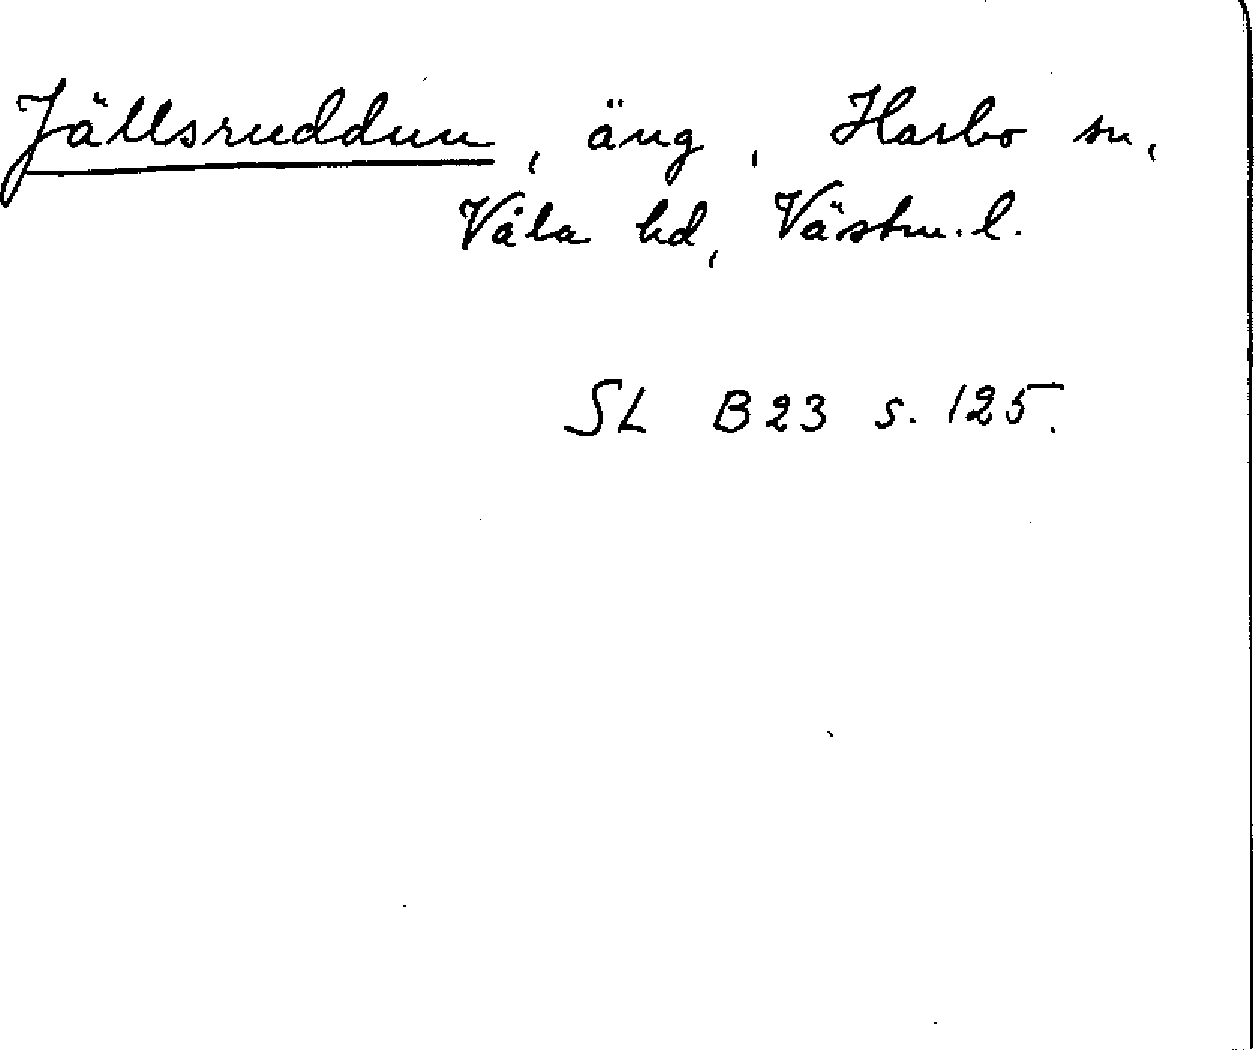 Jällsruddun, äng, Harbo sn,
Våla hd, Västm.l.
SL B23 s. 125.